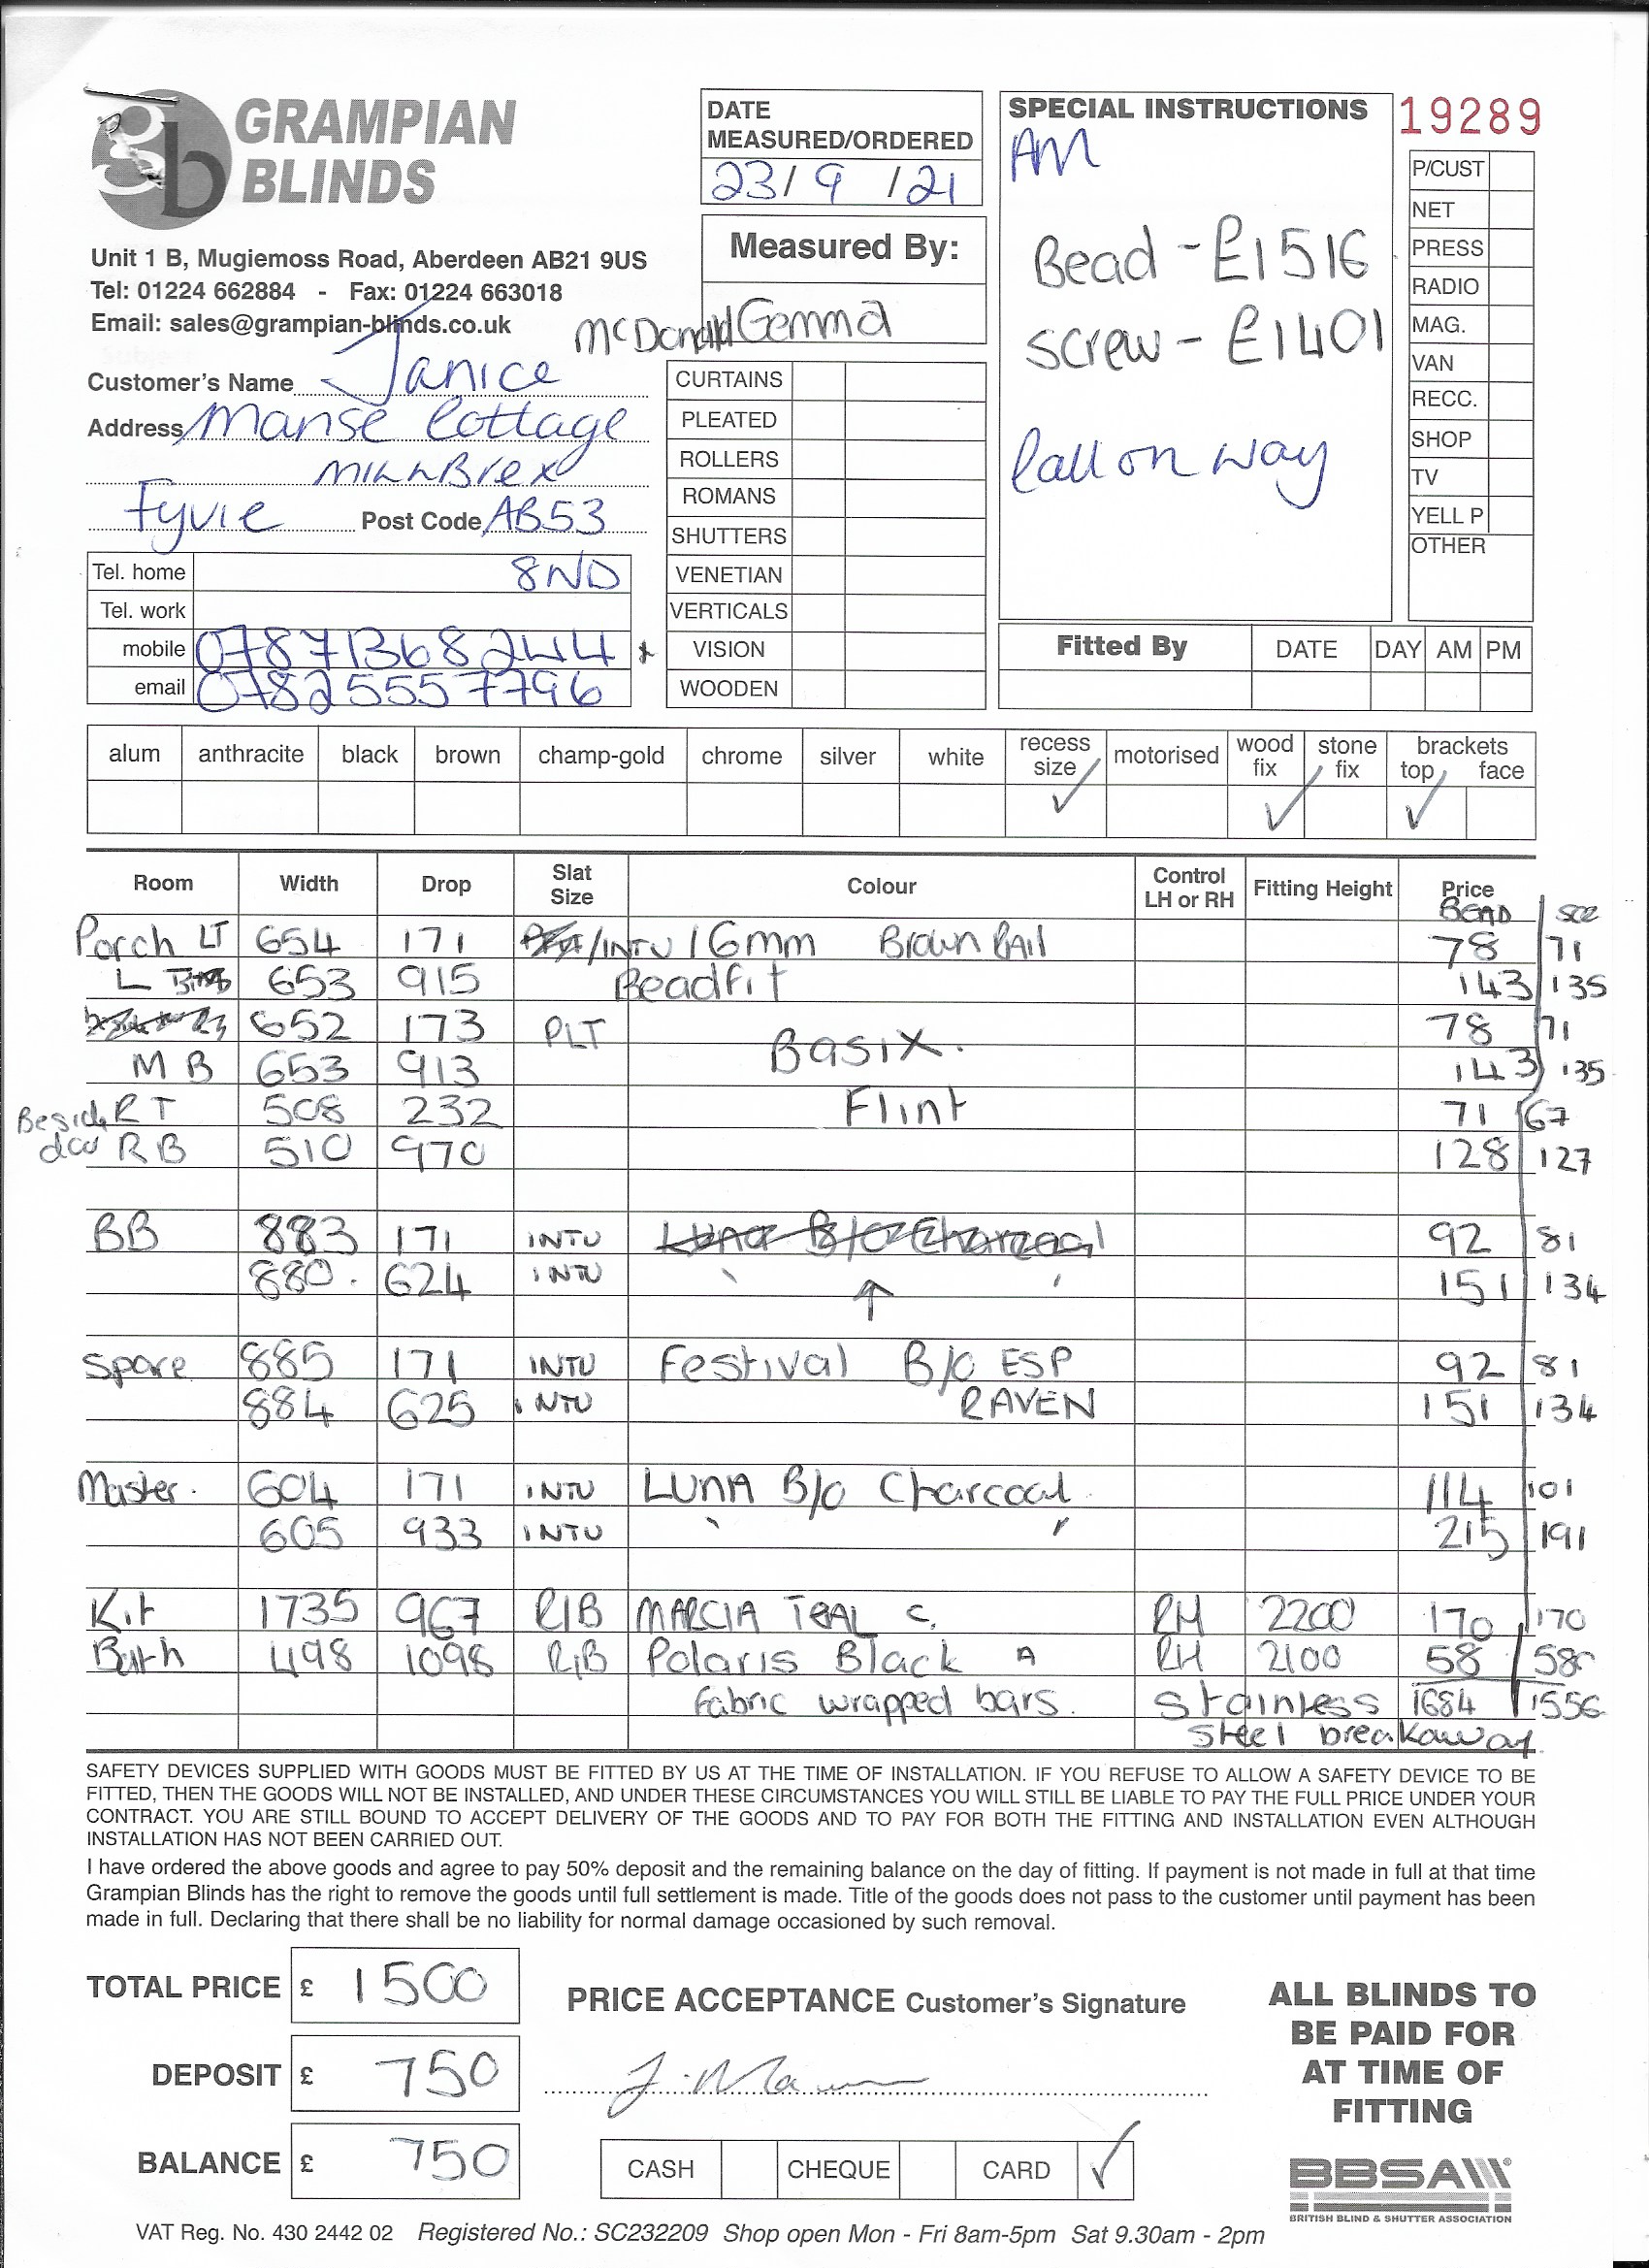 GRAMPIAN
BLINDS
Unit 1 B, Mugiemoss Road, Aberdeen AB21 9US
Tel: 01224 662884 - Fax: 01224 663018
Email: sales@grampian-blinds.co.uk
DATE
MEASURED/ORDERED
23/9/21
Measured By:
Gemma
SPECIAL INSTRUCTIONS
AM
Bead - £1516
Screw - £1401
Call on way
19289
P/CUST
NET
PRESS
RADIO
MAG.
VAN
RECC.
SHOP
TV
YELL P
OTHER
Customer's Name Janice McDonald
Address Manse Cottage
Millbrex
Fyvie Post Code AB53
8ND
Tel. home
Tel. work
mobile 07871368244 *
email 07825557796
CURTAINS
PLEATED
ROLLERS
ROMANS
SHUTTERS
VENETIAN
VERTICALS
VISION
WOODEN
Fitted By DATE DAY AM PM
alum anthracite black brown champ-gold chrome silver white recess size motorised wood fix stone fix brackets top face
✓ ✓ ✓
Room Width Drop Slat Size Colour Control LH or RH Fitting Height Price
BEAD
Porch LT 654 171 /INTU 16mm Brown Rail 78 71
L 653 915 Beadfit 143 135
652 173 PLT Basix. 78 71
M B 653 913 143 135
Beside RT 508 232 Flint 71 67
door RB 510 970 128 127
BB 883 171 INTU Luna B/o Charcoal 92 81
880. 624 INTU ↑ 151 134
Spare 885 171 INTU Festival B/o ESP 92 81
884 625 INTU RAVEN 151 134
Master. 604 171 INTU LUNA B/o Charcoal 114 101
605 933 INTU 215 191
Kit 1735 967 RIB MARCIA TEAL C. RH 2200 170 170
Bath 498 1098 RIB Polaris Black A RH 2100 58 58
Fabric wrapped bars. Stainless 1684 1556
Steel breakaway
SAFETY DEVICES SUPPLIED WITH GOODS MUST BE FITTED BY US AT THE TIME OF INSTALLATION. IF YOU REFUSE TO ALLOW A SAFETY DEVICE TO BE
FITTED, THEN THE GOODS WILL NOT BE INSTALLED, AND UNDER THESE CIRCUMSTANCES YOU WILL STILL BE LIABLE TO PAY THE FULL PRICE UNDER YOUR
CONTRACT. YOU ARE STILL BOUND TO ACCEPT DELIVERY OF THE GOODS AND TO PAY FOR BOTH THE FITTING AND INSTALLATION EVEN ALTHOUGH
INSTALLATION HAS NOT BEEN CARRIED OUT.
I have ordered the above goods and agree to pay 50% deposit and the remaining balance on the day of fitting. If payment is not made in full at that time
Grampian Blinds has the right to remove the goods until full settlement is made. Title of the goods does not pass to the customer until payment has been
made in full. Declaring that there shall be no liability for normal damage occasioned by such removal.
TOTAL PRICE £ 1500
DEPOSIT £ 750
BALANCE £ 750
PRICE ACCEPTANCE Customer's Signature
CASH CHEQUE CARD ✓
ALL BLINDS TO
BE PAID FOR
AT TIME OF
FITTING
BBSA
BRITISH BLIND & SHUTTER ASSOCIATION
VAT Reg. No. 430 2442 02 Registered No.: SC232209 Shop open Mon - Fri 8am-5pm Sat 9.30am - 2pm